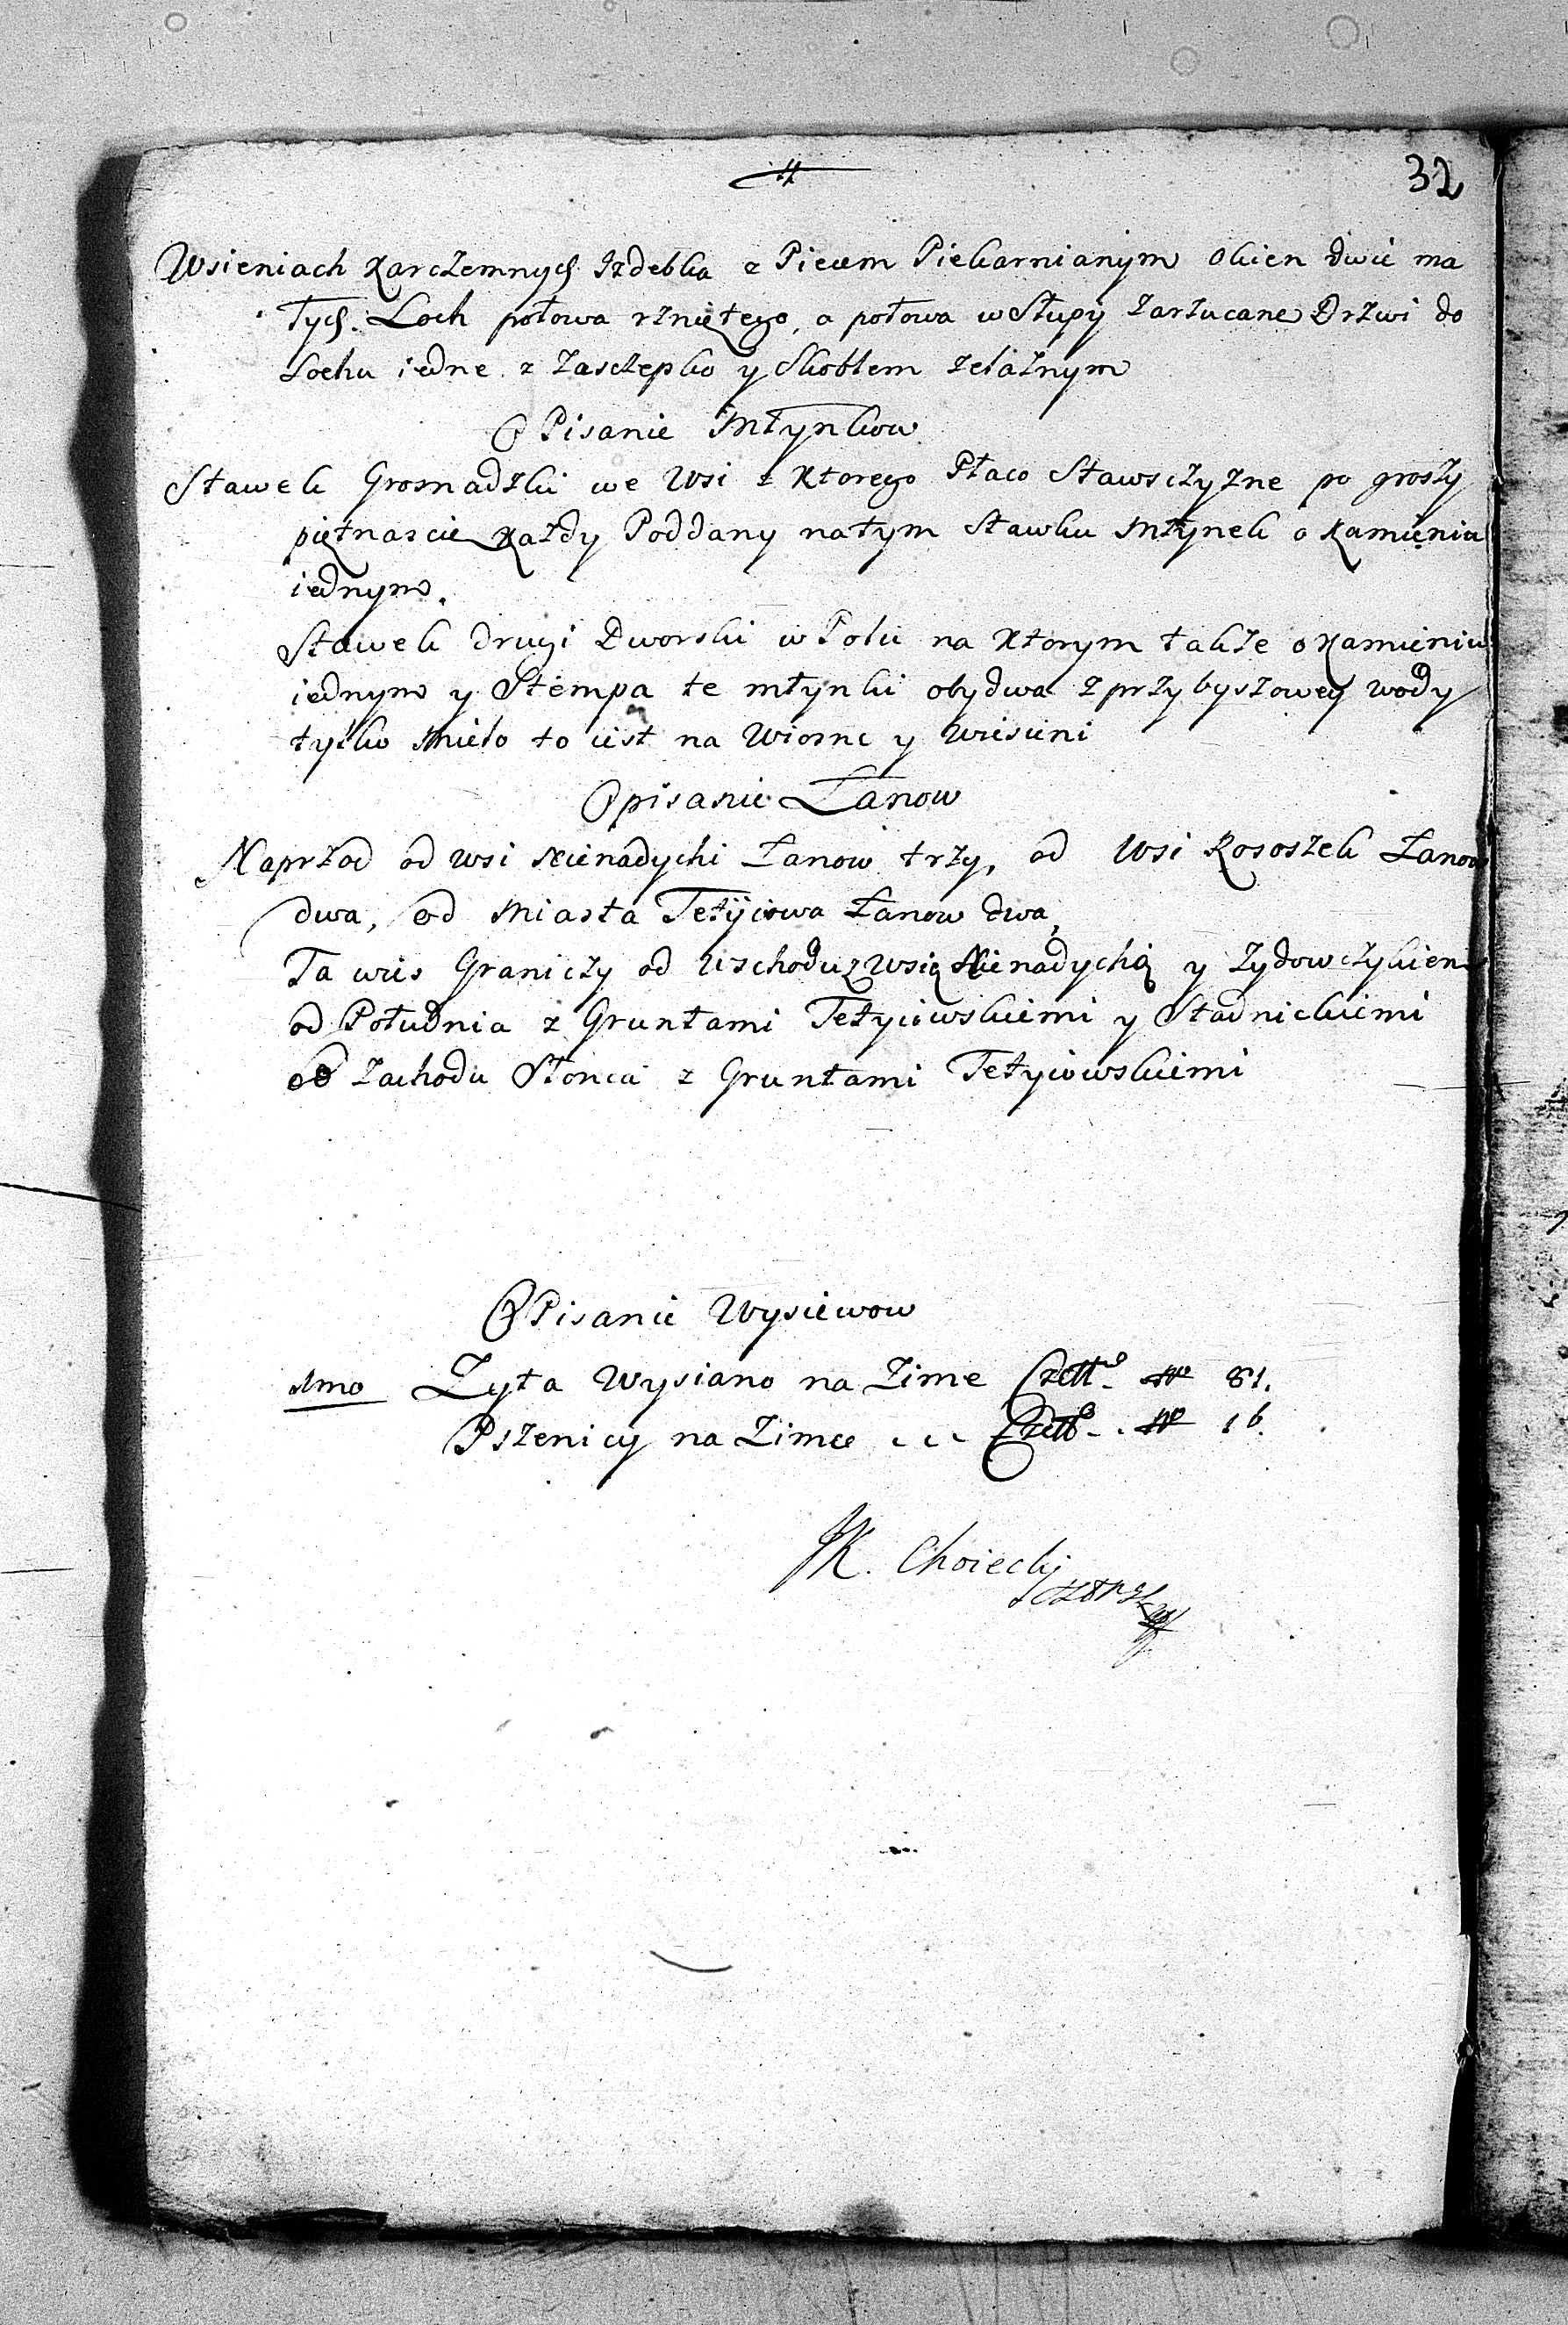 32
Wsieniach Karczemnych Izdebka z Piecem Piekarnianym Okien dwie ma
łych. Loch połowa rzniętego, a połowa w Słupy zarzucane Drzwi do
Lochu iedne z zasczepko y Skoblem zelaznym
OPisanie Młynkow
Stawek Gromadzki we Wsi z Ktorego Płaco Stawsczyzne po groszy
piętnascie Każdy Poddany natym Stawku Młynek o Kamieniu
iednym.
Stawek drugi Dworski w Polu na Ktorym także o Kamieniu
iednym y Stempa te młynki obydwa z przybyszowey wody
tylko Mielo to iest na Wiosne y Wiesieni
Opisanie Łanow
Naprzod od wsi Nienadychi Łanow trzy, od Wsi Kososzek Łanow
dwa, od Miasta Tetyiowa Łanow dwa,
Ta wies Graniczy od Wschodu z Wsią Nienadychą y Zydowczykiem
od Południa z Gruntami Tetyiowskiemi y Stadnickiemi
od Zachodu Słonca z Gruntami Tetyiowskiemi
OPisanie Wysiewow
Imo Zyta Wysiano na Zime Czett. No 81.
Pszenicy na Zime . . . Czett. No 16.
JK. Choiecki